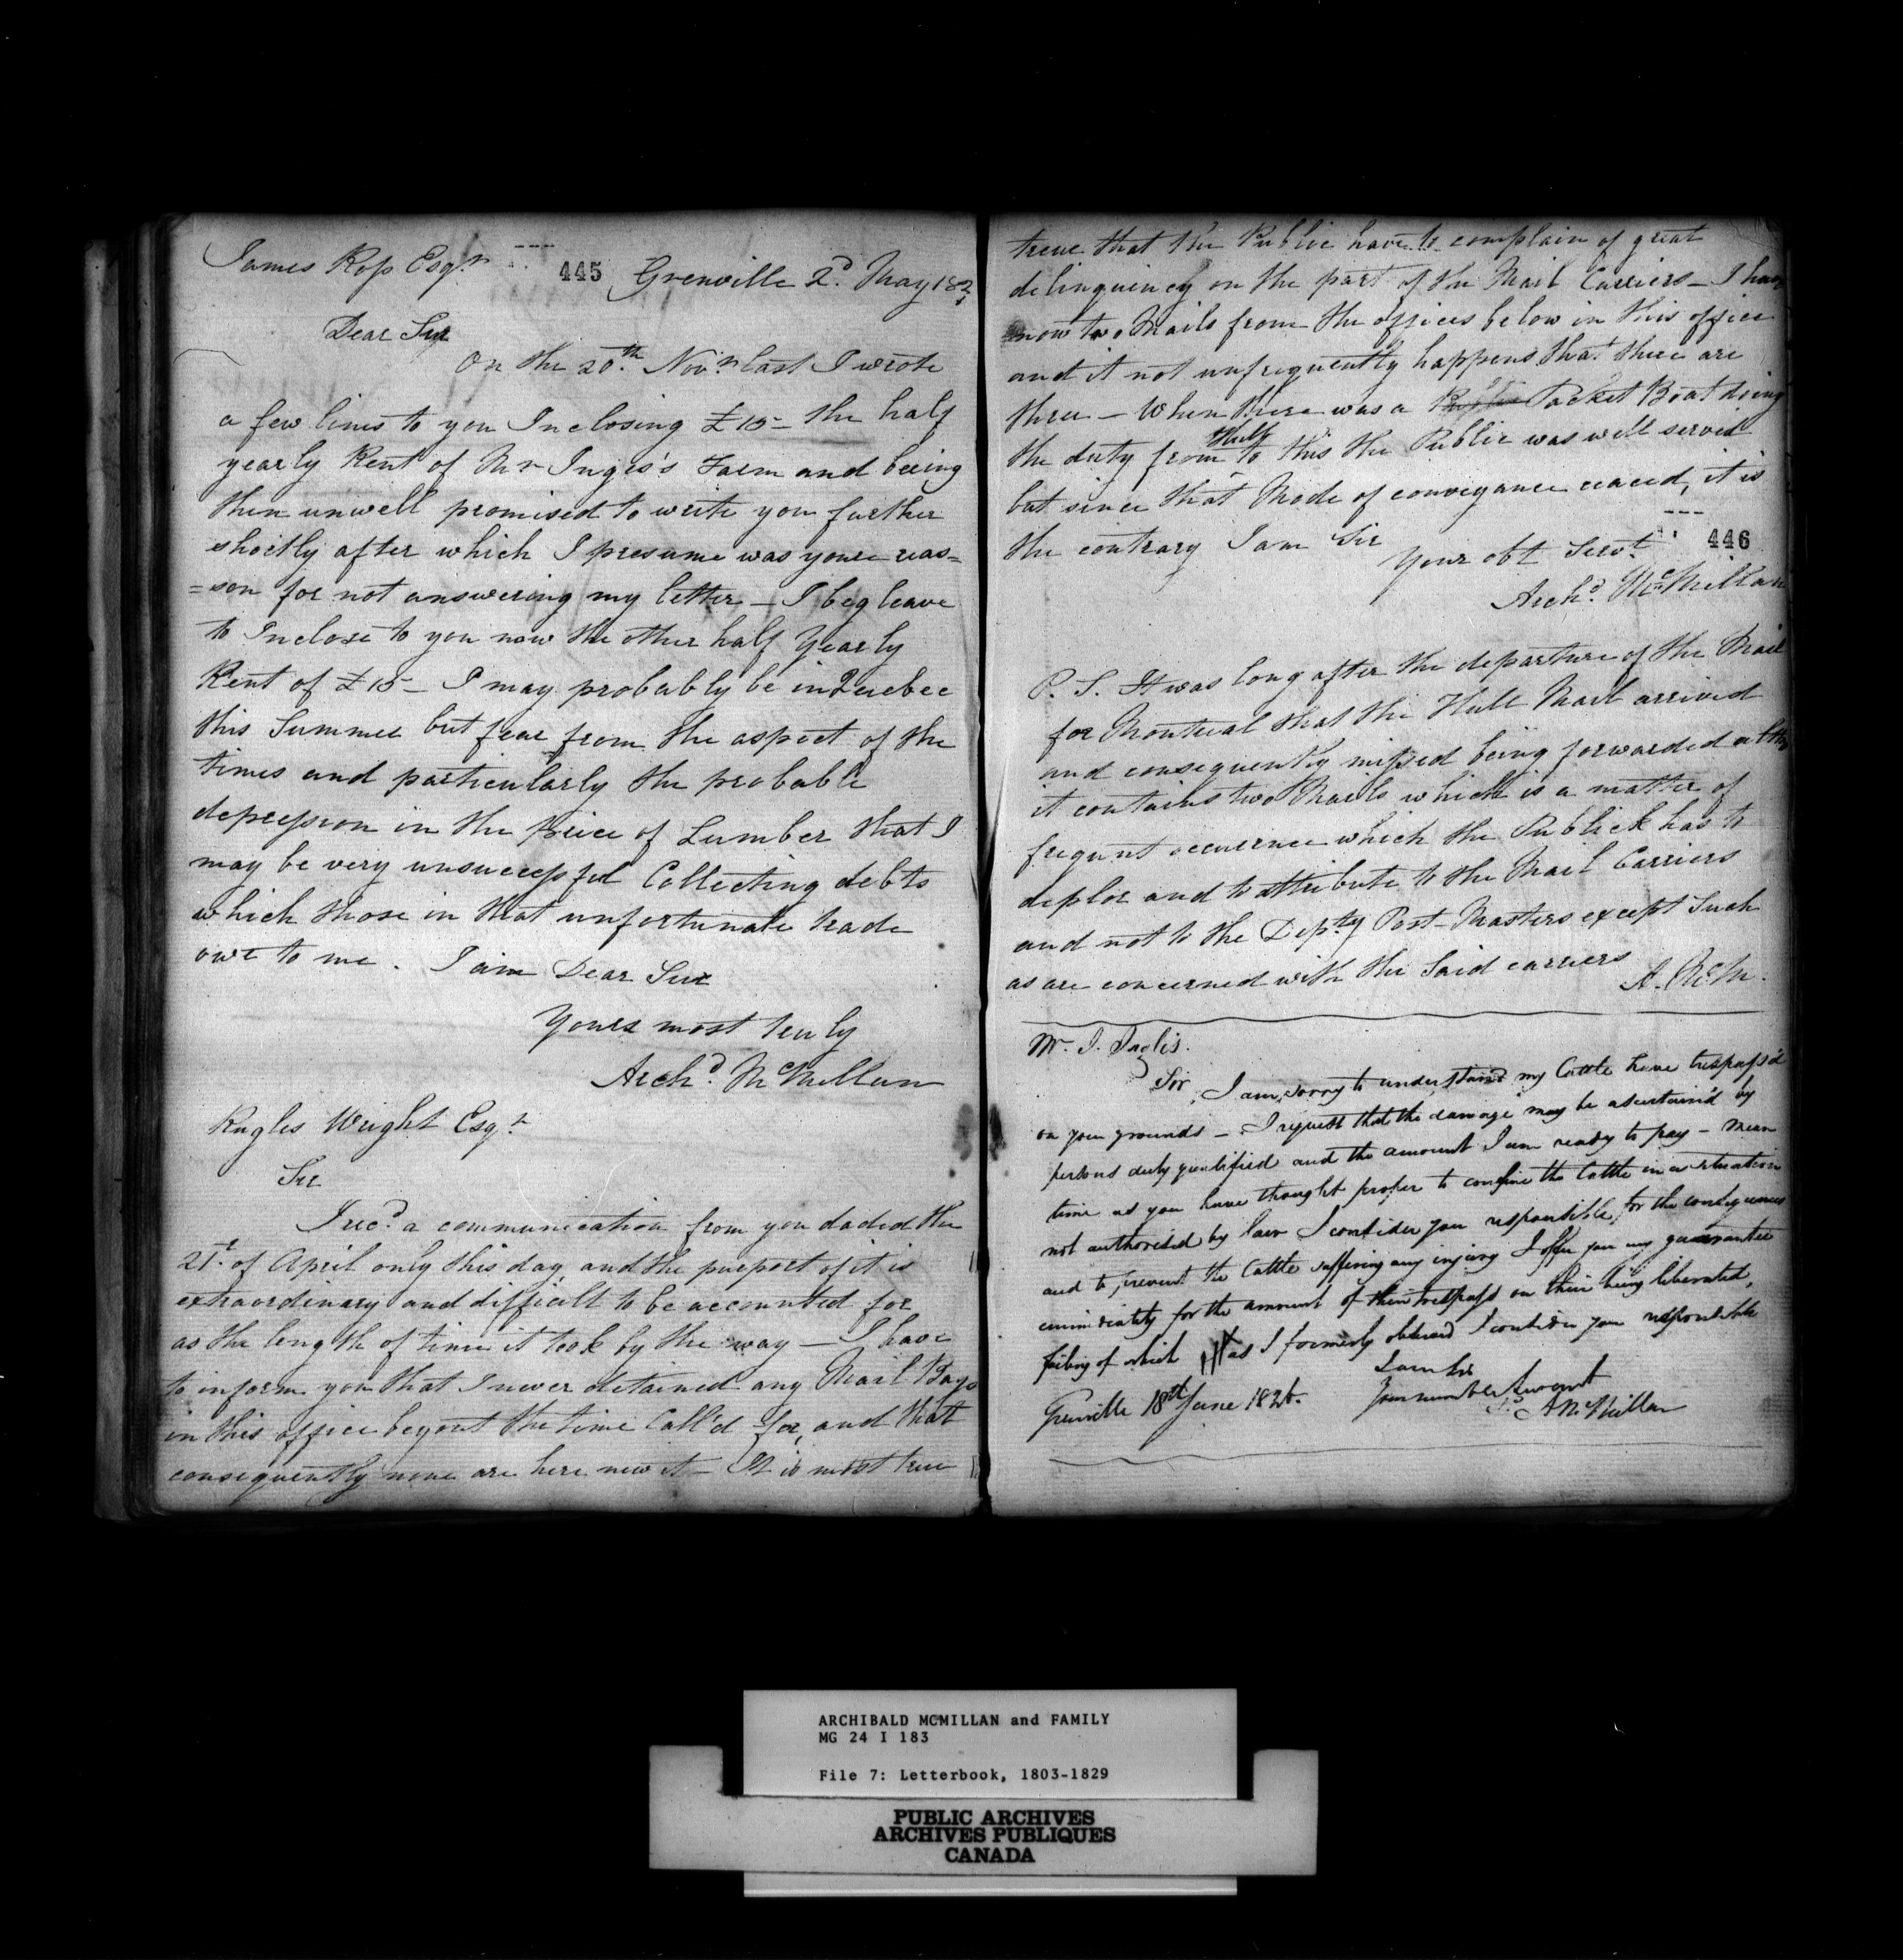 James Ross Esqr 445 Grenville 2d. May 182
Dear Sir
On the 20th. Novr. last I wrote
a few lines to you Inclosing £15- the half
yearly Rent of Mr Ingis's Farm and being
then unwell promised to write you further
shortly after which I presume was your reas=
=son for not answering my letter - I beg leave
to Inclose to you now the other half Yearly
Rent of £15- I may probably be in Quebec
this Summer but fear from the aspect of the
times and particularly the probable
depression in the price of Lumber that I
may be very unsuccessful Collecting debts
which those in that unfortunate trade
owe to me. I am Dear Sir
Yours most truly
Archd. McMillan
Rugles Wright Esqr
Sir
I recd. a communication from you daded the
21t. of April only this day and the purport of it is
extraordinary and difficult to be accounted for
as the length of time it took by the way - I have
to inform you that I never detained any Mail Bags
in this office beyont the time Call'd for, and that
consequently none are here now it - It is most true
treue that the Public have to complain of great
delinquincy on the part of the Mail Carriers - I have
now two Mails from the offices below in this office
and it not unfrequently happens that there are
three - When there was a Packet Boat doing
the duty from Hull to this the Public was well served
but since that Mode of conveyance ceaced, it is
the contrary I am Sir
Your obt Servt. 446
Archd. McMillan
P. S. It was long after the departure of the Mail
for Montreal that the Hull Mail arrived
and consequently missed being forwarded altho
it contains two Mails which is a matter of
frequnt occurrence which the Publick has to
deplor and to attribute to the Mail Carriers
and not to the Depty Post-Masters except Such
as are concerned with the Said carriers A. McM.
Mr. J. Inglis.
Sir, I am sorry to understand my Cattle have trespass'd
on your grounds - I request that the damage may be ascertain'd by
persons duly qualified and the amount I am ready to pay - mean
time as you have thought proper to confine the Cattle in a situation
not authorised by law I consider you responsible for the consequences
and to prevent the Cattle suffering any injury I offer you my guarantee
immidiately for the amount of their trespass on their being liberated,
failing of which as I formerly observed I consider you responsible
I am Sir
Grenville 18th June 1826. Your humble Servant
A McMillan
ARCHIBALD MCMILLAN and FAMILY
MG 24 I 183
File 7: Letterbook, 1803-1829
PUBLIC ARCHIVES
ARCHIVES PUBLIQUES
CANADA